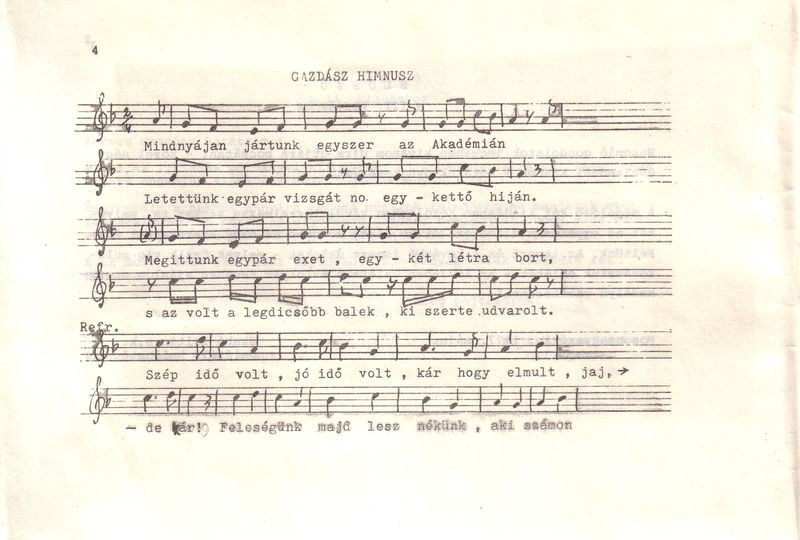 4
GAZDÁSZ HIMNUSZ
Mindnyájan jártunk egyszer az Akadémián
Letettünk egypár vizsgát no egy - kettő hiján.
Megittunk egypár exet, egy - két létra bort,
s az volt a legdicsőbb balek , ki szerte udvarolt.
Refr.
Szép idő volt , jó idő volt , kár hogy elmult , jaj, →
- de kár! Feleségünk majd lesz nékünk , aki számon